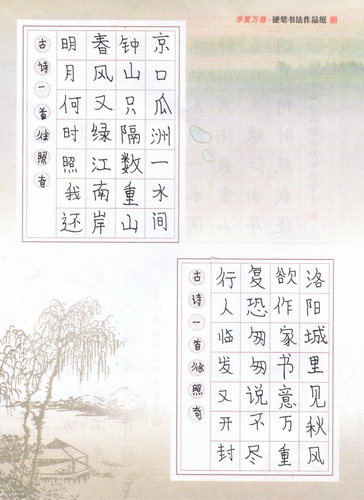 华夏万卷·硬笔书法作品纸
京口瓜洲一水间
钟山只隔数重山
春风又绿江南岸
明月何时照我还
古诗一首
洛阳城里见秋风
欲作家书意万重
复恐匆匆说不尽
行人临发又开封
古诗一首